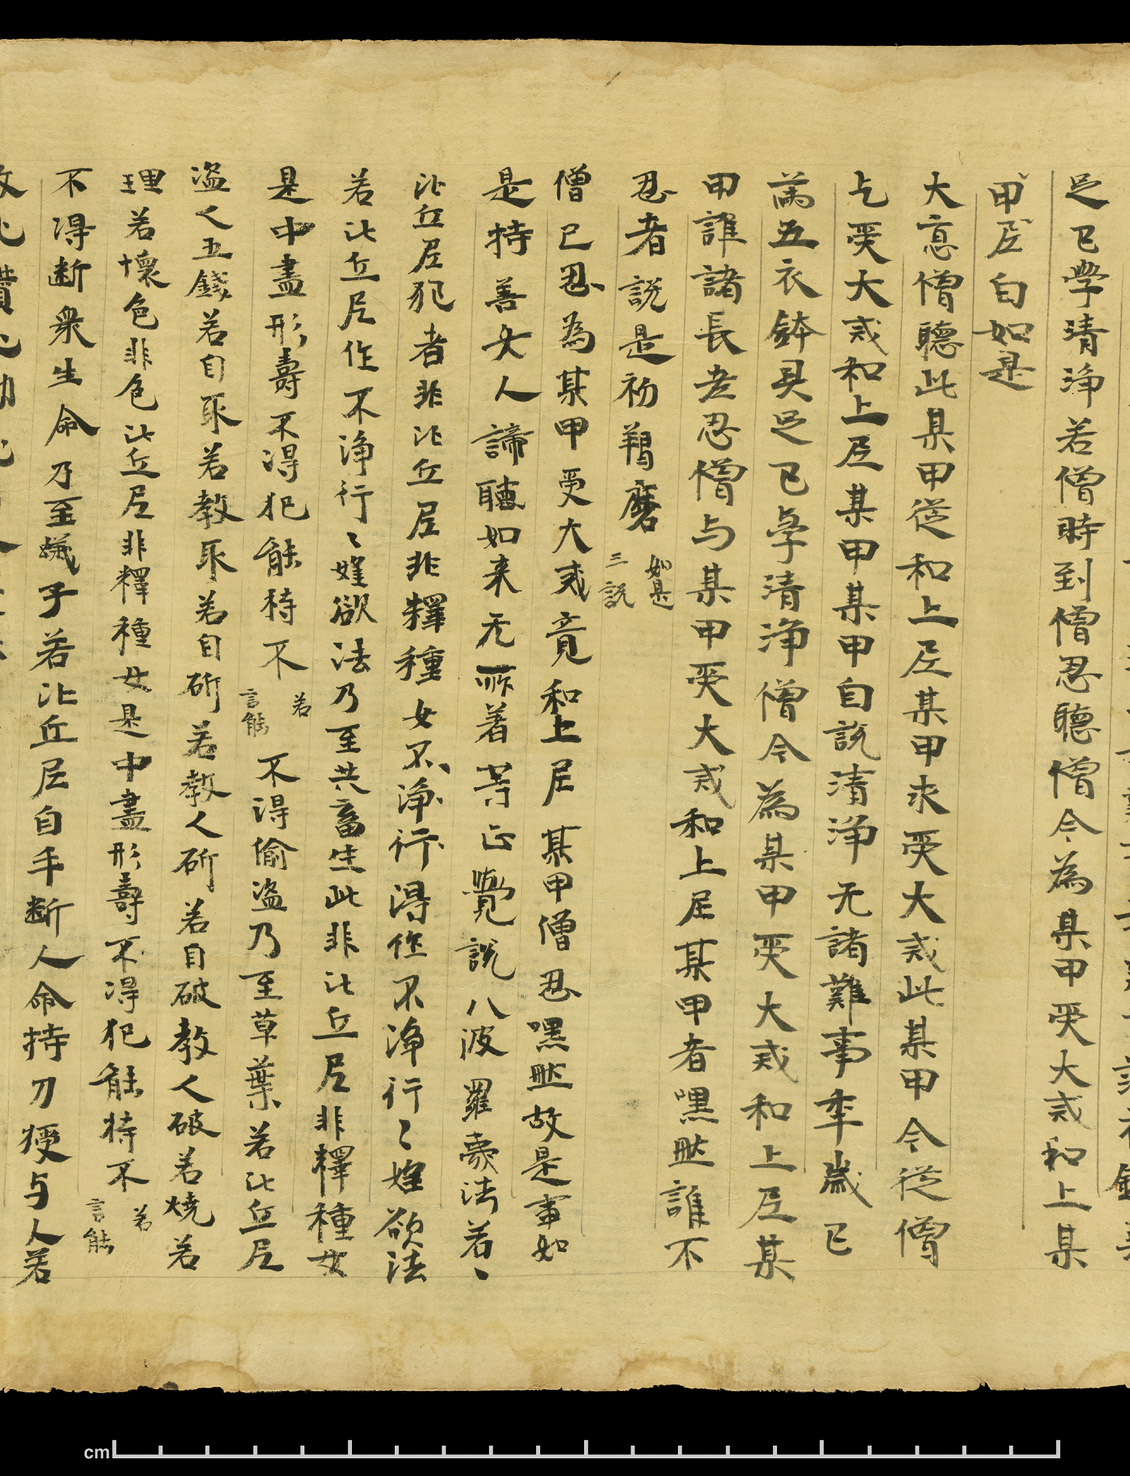 足已學清淨若僧時到僧忍聽僧今為某甲受大戒和上某
甲尼白如是
大德僧聽此某甲從和上尼某甲求受大戒此某甲今從僧
乞受大戒和上尼某甲某甲自說清淨无諸難事年歲已
滿五衣鉢具足已學清淨僧今為某甲受大戒和上尼某
甲誰諸長老忍僧与某甲受大戒和上尼某甲者嘿然誰不
忍者說是初羯磨 如是三說
僧已忍為某甲受大戒竟和上尼某甲僧忍嘿然故是事如
是持善女人諦聽如来无所著等正覺說八波羅夷法若〻
比丘尼犯者非比丘尼非釋種女不淨行得作不淨行〻婬欲法
若比丘尼作不淨行〻婬欲法乃至共畜生此非比丘尼非釋種女
是中盡形壽不得犯能持不 若言能 不得偷盜乃至草葉若比丘尼
盜人五錢若自取若教取若自斫若教人斫若自破教人破若燒若
理若壞色非色比丘尼非釋種女是中盡形壽不得犯能持不 若言能
不得断衆生命乃至蟻子若比丘尼自手断人命持刀授与人若